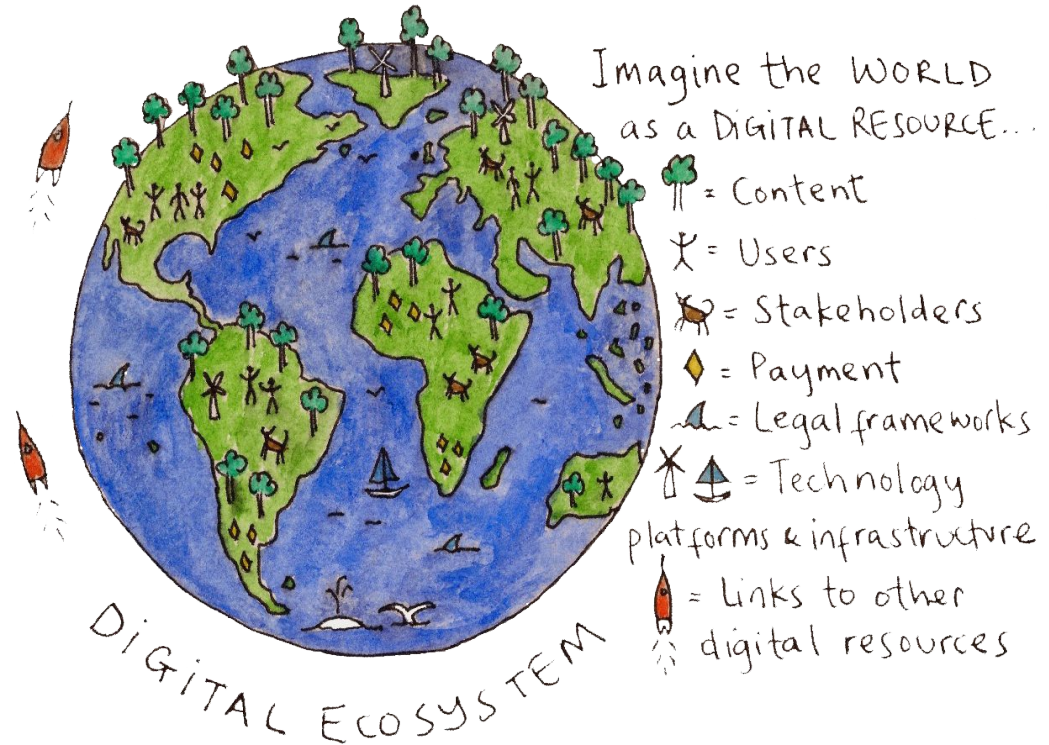 Imagine the WORLD
as a DIGITAL RESOURCE...
= Content
= Users
= Stakeholders
= Payment
= Legal frameworks
= Technology
platforms & infrastructure
= Links to other
digital resources
DIGITAL ECOSYSTEM